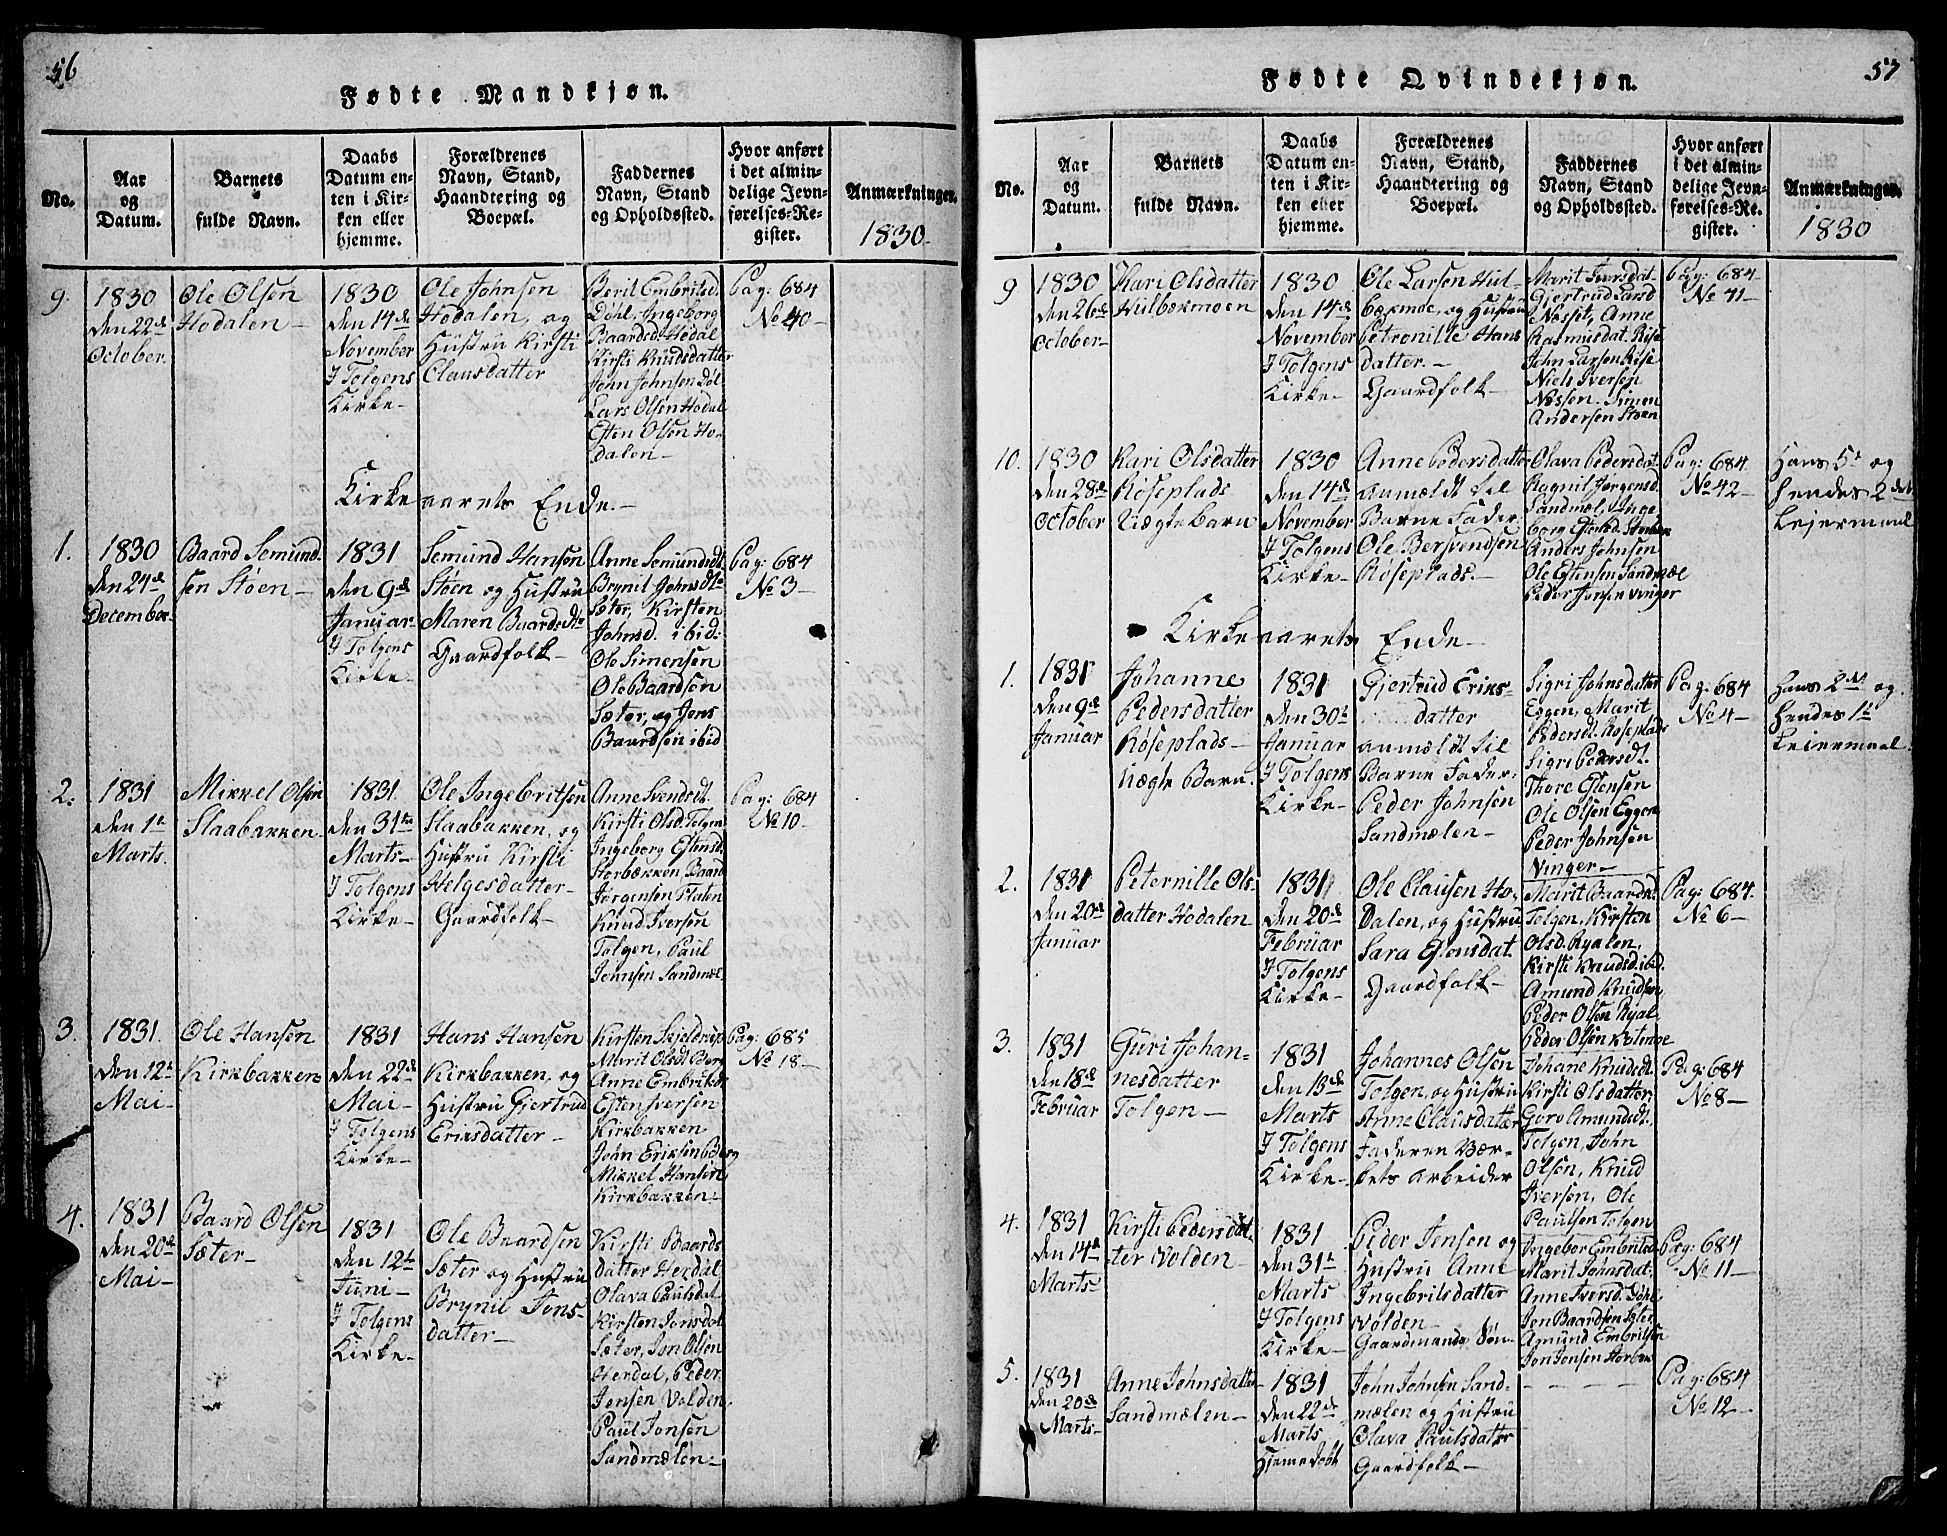 56
Fødte Mandkjøn.
No.
Aar
og
Datum.
Barnets
fulde Navn.
Daabs
Datum en-
ten i Kir-
ken eller
hjemme.
Forældrenes
Navn, Stand,
Haandtering og
Boepæl.
Faddernes
Navn, Stand
og Opholdssted.
Hvor anført
i det almin-
delige Jevn-
førelses-Re-
gister.
Anmærkninger.
1830
9.
1830
den 22de
October.
Ole Olsen
Hodalen
1830
den 14de
November
I Tolgens
Kirke
Ole Johnsen
Hodalen, og
Hustru Kirsti
Clausdatter
Berit Embritsd.
Døhl, Ingeborg
Baardsd. Hodal
Kirsti Knudsdatter
John Johnsen Døl
Lars Olsen Hodal
Esten Olsen Ho-
dalen
Pag: 684
No 40
Kirkeaarets Ende.
1.
1830
den 24de
December
Baard Semund-
sen Støen
1831
den 9de
Januar
I Tolgens
Kirke
Semund Hansen
Støen og Hustru
Maren Baardsdtr
Gaardfolk
Anne Semundsdt.
Brynil Johnsdtr
Sæter, Kirsten
Johnsd. ibid:
Ole Simensen
Ole Baardsen
Sæter, og Jens
Baardsen ibid
Pag: 684
No 3
2.
1831
den 1te
Marts.
Mikkel Olsen
Slaabakken
1831.
den 31te
Marts
I Tolgens
Kirke
Ole Ingebritsen
Slaabakken, og
Hustru Kirsti
Helgesdatter
Gaardfolk
Anne Svendsdt.
Kirsti Olsd. Tolgen
Ingeborg Estensd.
Storbækken Baard
Jørgensen Staten
Knud Iversen
Tolgen, Paul
Johnsen Sandmæl.
Pag: 684
No 10
3.
1831.
den 12te
Mai
Ole Hansen
Kirkbakken
1831
den 22de
Mai
I Tolgens
Kirke
Hans Hansen
Kirkbakken, og
Hustru Gjertrud
Eriksdatter
Kirsten Skjeldrup
Marit Olsd. Berg
Anne Embriksd.
Esten Iversen
Kirkbakken
John Eriksen Berg
Mikkel Hansen
Kirkbakken
Pag: 685
No 18
4.
1831
den 20de
Mai
Baard Olsen
Sæter
1831
den 12te
Juni
I Tolgens
Kirke
Ole Baardsen
Sæter og Hustru
Brynil Jons-
datter
Kirsti Baards
datter Herdal
Olava Paulsdat.
Kirsten Jonsdat
Sæter, Jon Olsen
Herdal, Peder
Jonsen Volden
Paul Jonsen
Sandmælen
57
Fødte Qvindekjøn.
No.
Aar
og
Datum.
Barnets
fulde Navn.
Daabs
Datum en-
ten i Kir-
ken eller
hjemme.
Forældrenes
Navn, Stand,
Haandtering og
Boepæl.
Faddernes
Navn, Stand
og Opholdssted.
Hvor anført
i det almin-
delige Jevn-
førelses-Re-
gister.
Anmærkninger.
1830
9
1830
den 26de
October
Kari Olsdatter
Hulbekmoen
1830
den 14de
November
I Tolgens
Kirke
Ole Larsen Hul-
bækmoe, og Hustru
Petronille Hans
datter.
Gaardfolk
Marit Iversdat.
Gjertrud Larsd
Nesset, Anne
Rasmusdat. Rise
John Larsen Rise
Niels Iversen
Nessen. Simen
Andersen Støen
Pag: 684
No 41
10.
1830
den 28de
October
Kari Olsdatter
Røseplads
Uægte Barn
1830
den 14de
November
I Tolgens
Kirke
Anne Pedersdatter
anmældt til
Barne Fader
Ole Bersvendsen
Røseplads.
Olava Pedersdat.
Ragnil Jørgensd.
Sandmæl, Inge
borg Estensd.
Anders Johnsen
Ole Estensen Sandmæl
Peder Jonsen Vinger
Pag: 684
No 42
Hans 5te og
Hendes 2det
Leiermaal
Kirkeaarets Ende
1.
1831
den 9de
Januar
Johanne
Pedersdatter
Røseplads
Uægte Barn.
1831
den 30te
Januar
I Tolgens
Kirke
Gjertrud Eriks-
datter
anmældt til
Barne Fader:
Peder Johnsen
Sandmælen
Sigri Johnsdatter
Eggen, Marit
Pedersdt. Røseplads
Sigri Pedersdt.
Thore Estensen
Ole Olsen Eggen
Peder Johnsen
Vinger
Pag: 684
No 4
Hans 2det og
Hendes 1te
Leiermaal.
2.
1831
den 20de
Januar
Peternille Ols-
datter Hodalen
1831
den 20de
Februar
I Tolgens
Kirke
Ole Clausen Ho-
dalen, og Hustru
Sara Estensdat.
Gaardfolk
Marit Baardsd.
Tolgen, Kirsten
Olsd. Ryalen,
Kirsti Knudsd. ibid.
Amund Knudsen
Peder Olsen Ryal
Peder Olsen
Pag: 684
No 6
3.
1831
den 18de
Februar
Guri Johan-
nesdatter
Tolgen
1831
den 13de
Marts
I Tolgens
Kirke
Johannes Olsen
Tolgen, og Hustru
Anne Clausdatter
Faderen Vær-
kets arbeider
Johane Knudsdt.
Kirsti Olsdatter
Goro Amundsdt.
Tolgen, John
Olsen, Knud
Iversen, Ole
Paulsen Tolgen
Pag: 684
No 8
4.
1831
den 14de
Marts
Kirsti Pedersdat-
ter Volden
1831
den 31te
Marts
I Tolgens
Kirke
Peder Jensen og
Hustru Anne
Ingebrilsdatter
Volden
Gaardmands Søn
Ingebor Embritsd.
Marit Johnsdat.
Anne Iversd. Døhl
Jon Baardsen Sæter
Amund Embritsen
Jon Jonsen Horbek
Pag: 684
No 11
5.
1831
den 20de
Marts
Anne Johnsdatter
Sandmælen
1831
den 22de
Marts
Hjemedøbt
John Johnsen Sand-
mælen og Hustru
Olava Paulsdatter
Gaardfolk
Pag: 684
No 12